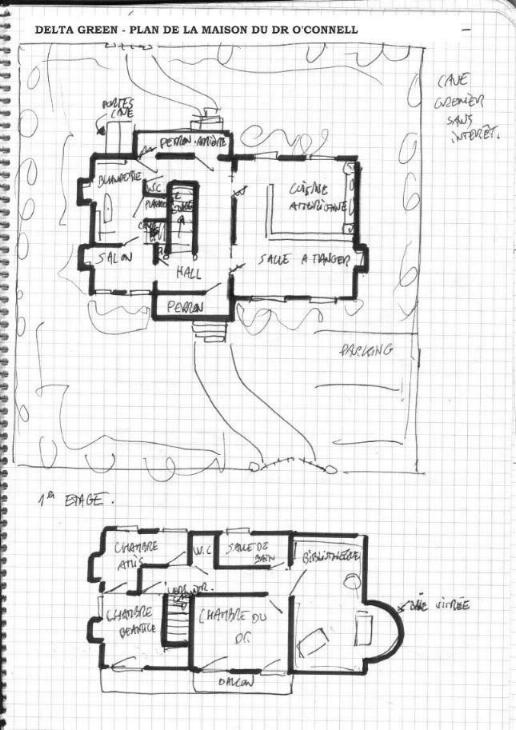 DELTA GREEN - PLAN DE LA MAISON DU DR O'CONNELL
CAVE
GRENIER
SANS
INTERÊT.
PORTES
CAVE
PERRON ARRIÈRE
BUANDERIE
W.C
PLACARD
CUISINE
AMERICAINE
SALON
HALL
SALLE A MANGER
PERRON
PARKING
1er ETAGE.
CHAMBRE
AMIS
W.C
SALLE DE
BAIN
BIBLIOTHÈQUE
CHAMBRE
BEATRICE
CHAMBRE DU
DR.
BAIE VITRÉE
BALCON